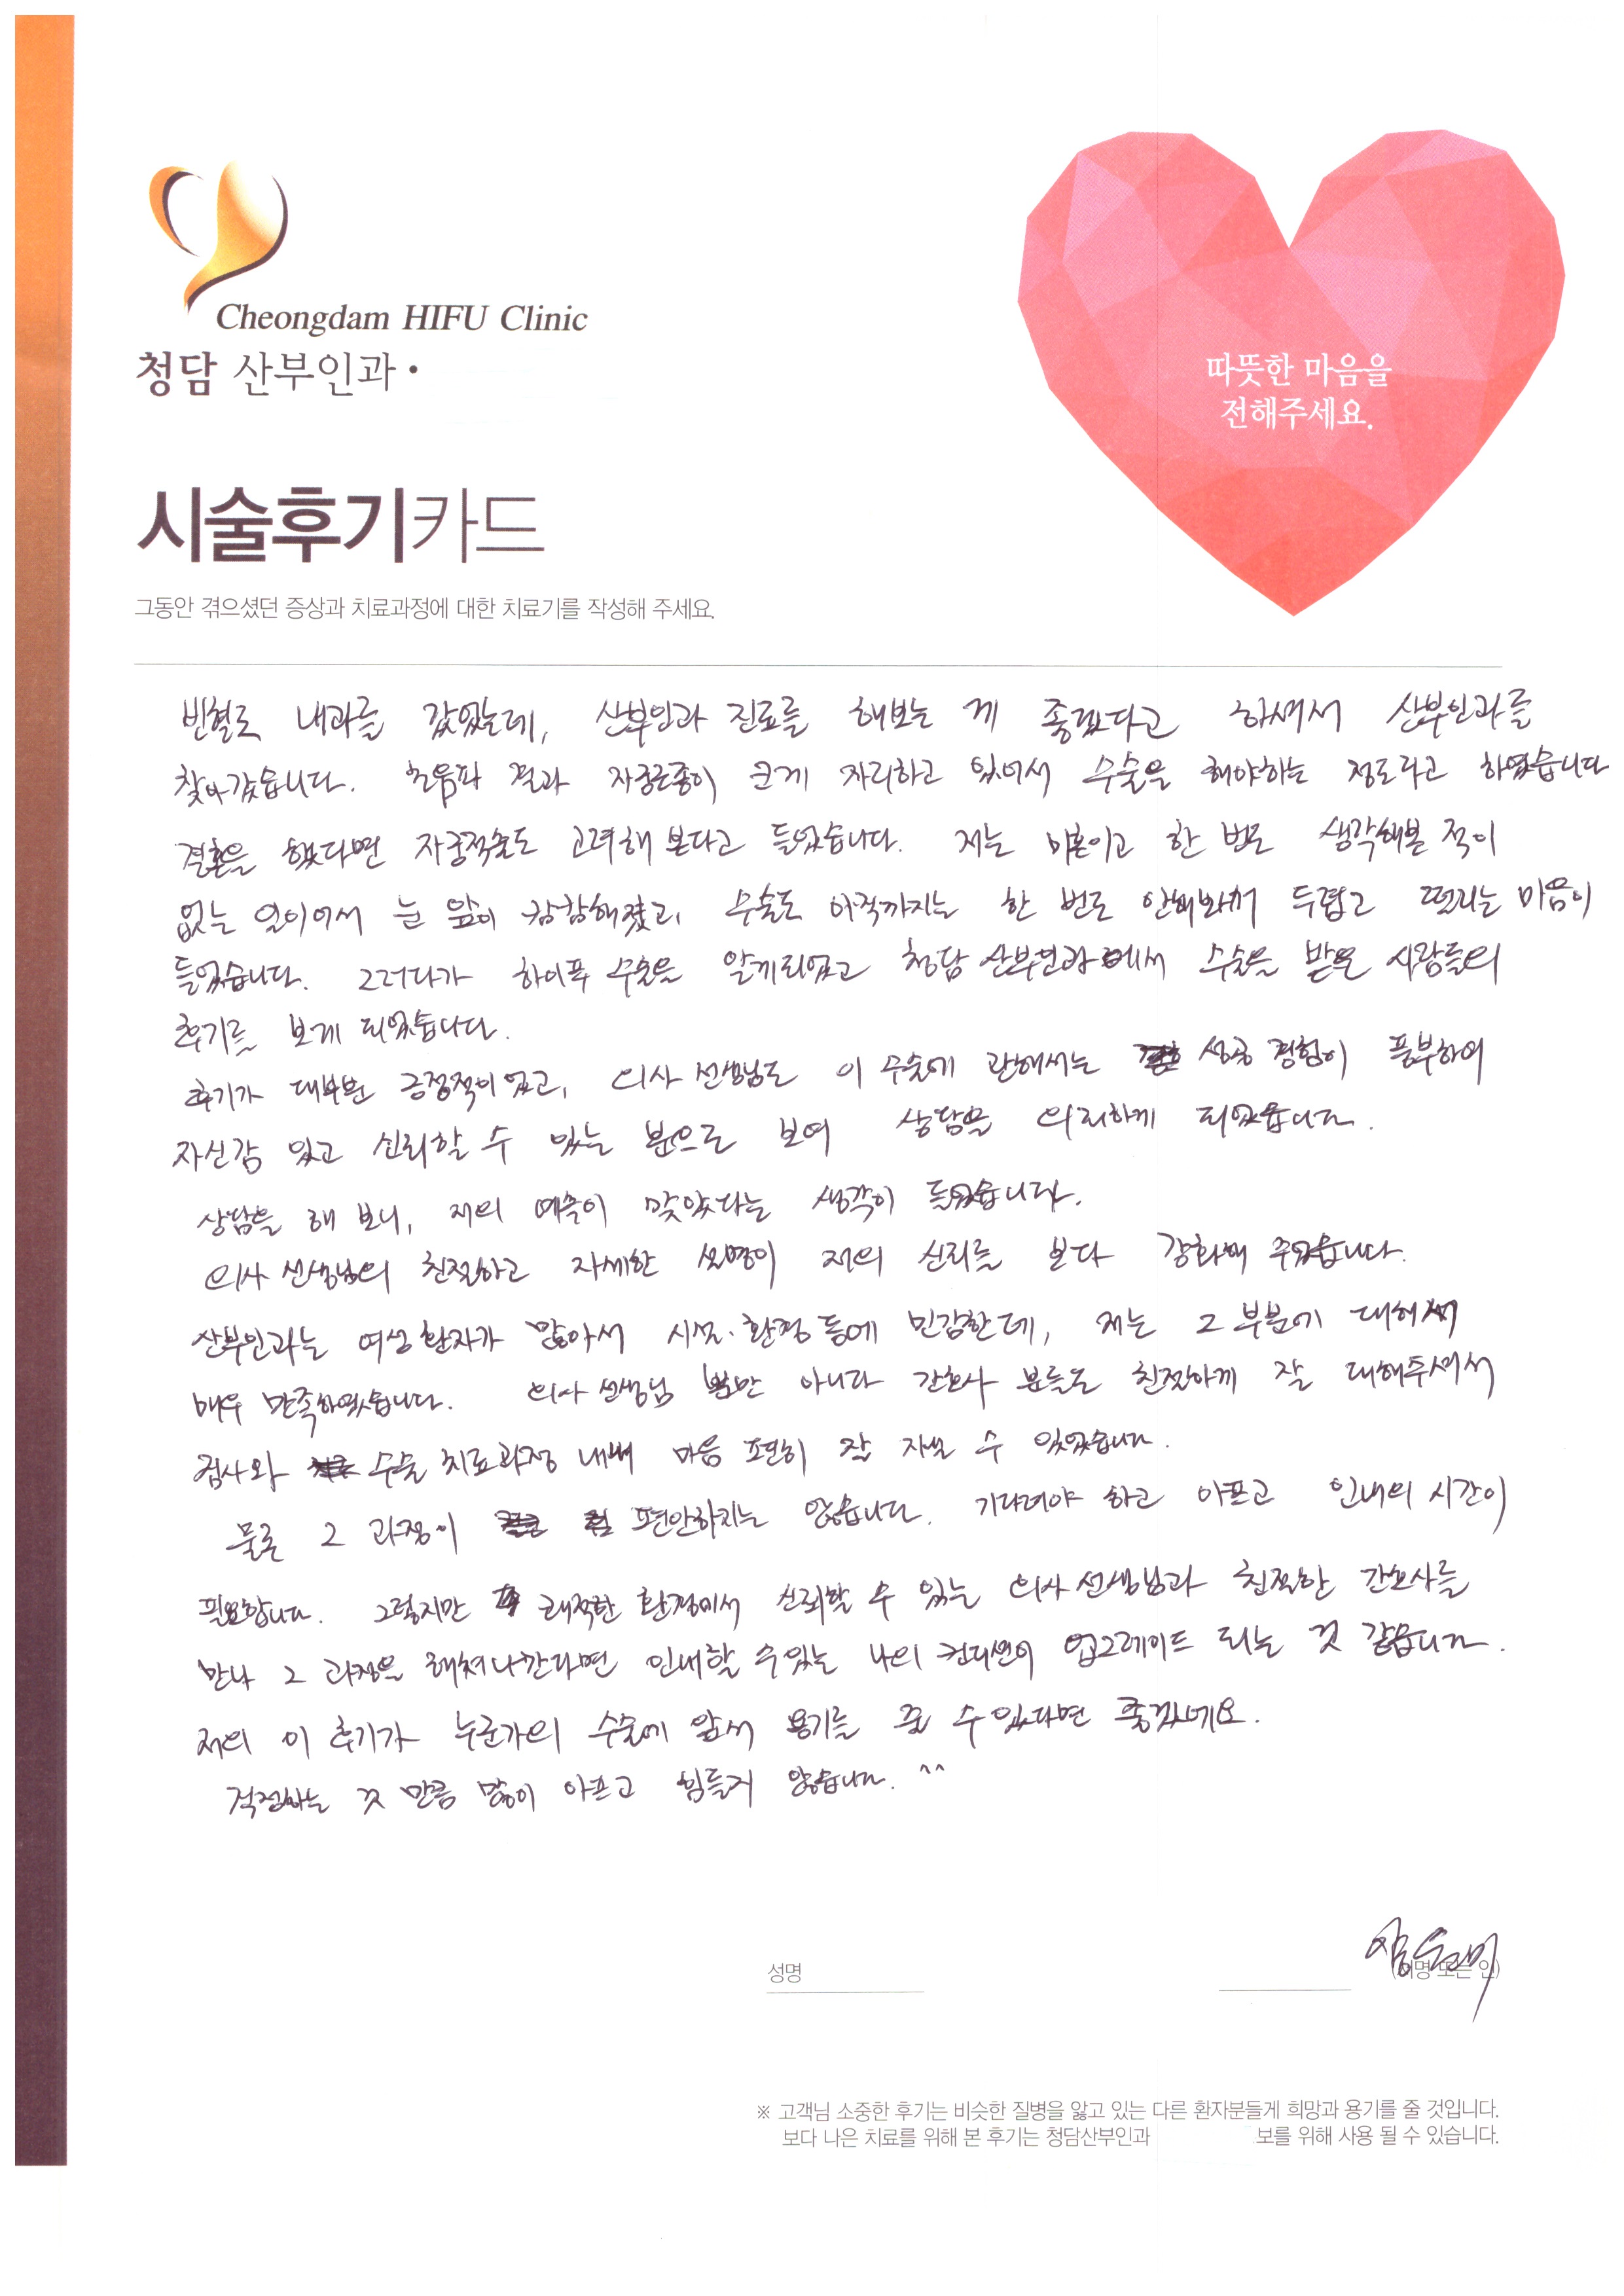 Cheongdam HIFU Clinic
청담 산부인과·
따뜻한 마음을
전해주세요.
시술후기카드
그동안 겪으셨던 증상과 치료과정에 대한 치료기를 작성해 주세요.
빈혈로 내과를 갔었는데, 산부인과 진료를 해보는 게 좋겠다고 하셔서 산부인과를
찾아갔습니다. 초음파 결과 자궁근종이 크게 자리하고 있어서 수술을 해야하는 정도라고 하였습니다
결혼을 했다면 자궁적출도 고려해 본다고 들었습니다. 저는 미혼이고 한 번도 생각해본 적이
없는 일이어서 눈 앞이 캄캄해졌고, 수술도 아직까지는 한 번도 안해봐서 두렵고 떨리는 마음이
들었습니다. 그러다가 하이푸 수술을 알게되었고 청담 산부인과에서 수술을 받은 사람들의
후기를 보게 되었습니다.
후기가 대부분 긍정적이었고, 의사 선생님도 이 수술에 관해서는 성공 경험이 풍부하여
자신감 있고 신뢰할 수 있는 분으로 보여 상담을 의뢰하게 되었습니다.
상담을 해 보니, 저의 예측이 맞았다는 생각이 들었습니다.
의사 선생님의 친절하고 자세한 설명이 저의 신뢰를 보다 강화해 주었습니다.
산부인과는 여성환자가 많아서 시설·환경 등에 민감한데, 저는 그 부분에 대해서
매우 만족하였습니다. 의사 선생님 뿐만 아니라 간호사 분들도 친절하게 잘 대해주셔서
검사와 수술 치료과정 내내 마음 편히 잘 지낼 수 있었습니다.
물론 그 과정이 편안하지는 않습니다. 기다려야 하고 아프고 인내의 시간이
필요합니다. 그렇지만 쾌적한 환경에서 신뢰할 수 있는 의사 선생님과 친절한 간호사를
만나 그 과정을 헤쳐나간다면 인내할 수있는 나의 컨디션이 업그레이드 되는 것 같습니다.
저의 이 후기가 누군가의 수술에 앞서 용기를 줄 수있다면 좋겠네요.
걱정하는 것 만큼 많이 아프고 힘들지 않습니다. ^^
성명
(서명 또는 인)
※ 고객님 소중한 후기는 비슷한 질병을 앓고 있는 다른 환자분들게 희망과 용기를 줄 것입니다.
보다 나은 치료를 위해 본 후기는 청담산부인과 보를 위해 사용 될 수 있습니다.